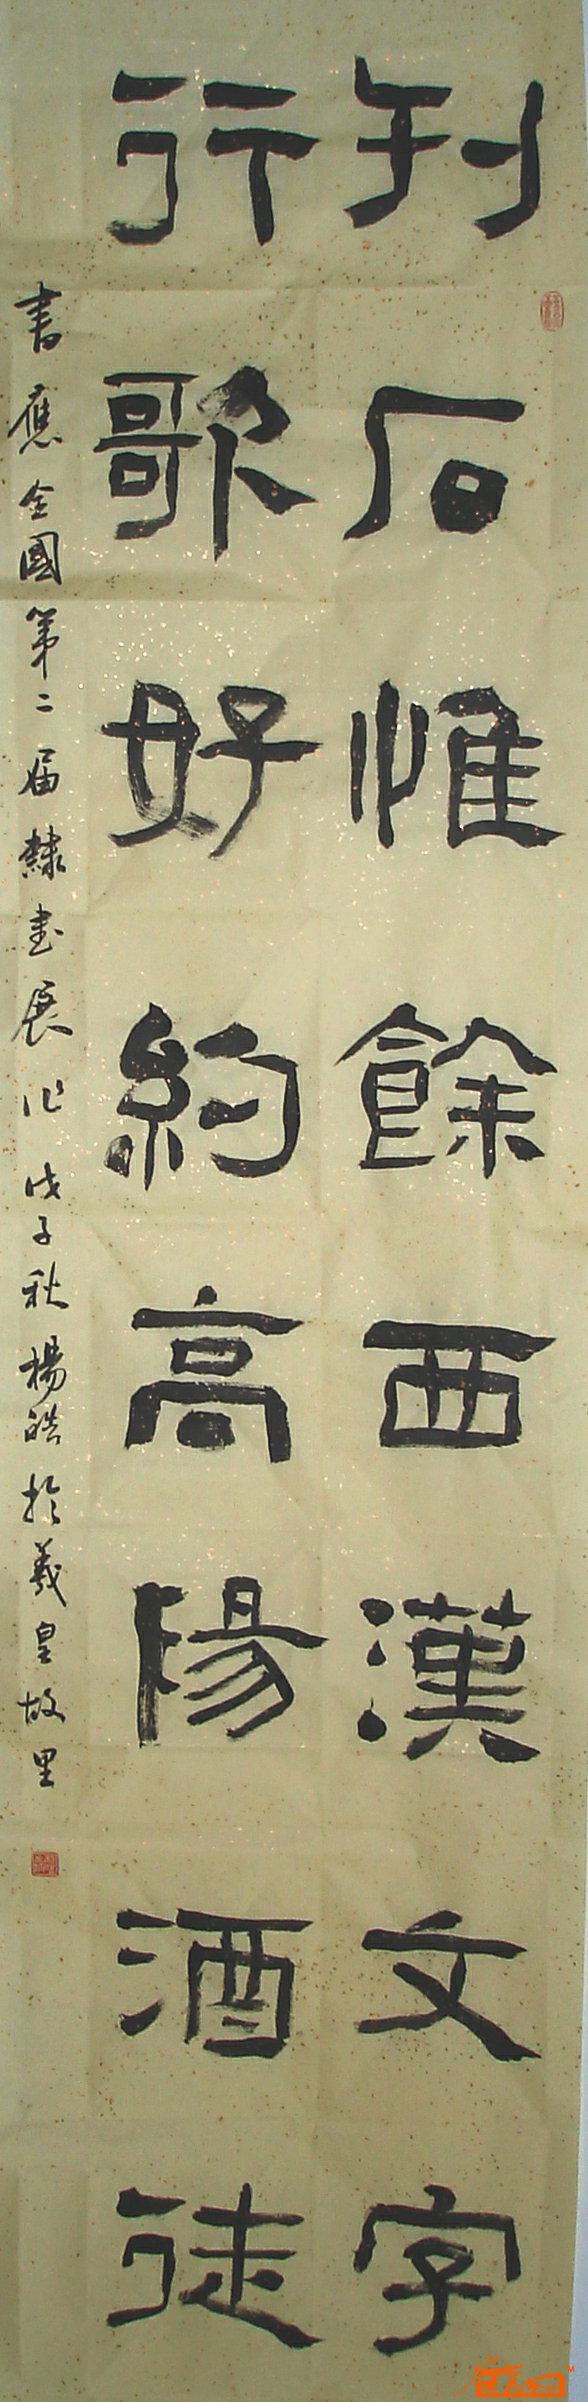 刊石惟餘西漢文字
行歌好約高陽酒徒
書應全國第二屆隸書展作戊子秋楊皓於羲皇故里